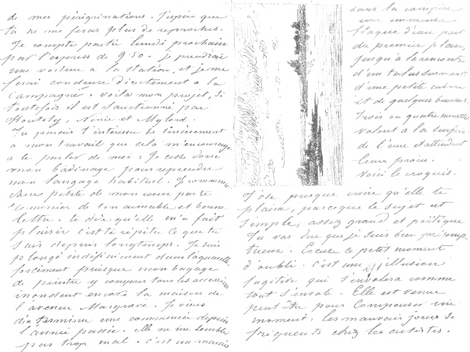 de mes pérégrinations. J'espère que
tu ne me feras plus de reproches.
Je compte partir lundi prochain
par l'express de 9.50. Je prendrai
une voiture à la station et je me
ferai conduire directement à la
campagne. Voilà mon projet, si
toutefois il est sanctionné par
et Mylord.
Tu parais t'intéresser si sincèrement
à mon travail que cela m'encourage
à te parler de moi. Je
mon badinage pour reprendre
mon langage habituel. Je
chère petite de mon cœur par te
remercier de ton aimable et bonne
lettre. te dire qu'elle m'a fait
plaisir c'est te répéter ce que tu
sais depuis longtemps. Je suis
plongé indéfiniment dans l'aquarelle
forcément puisque mon bagage
de peintre y compris tous les accessoires
inondent encore la maison de
l'avenue Je viens
de terminer une commencée depuis
l'année passée. elle ne me semble
pas trop mal. c'est un marais
dans la campine
une immense
flaque d'eau part
du premier plan
jusqu'à la rencontre
d'un talus surmonté
d'une petite cabane
et de quelques buissons
Trois ou quatre
volent à la surface
de l'eau attendant
leur proie.
Voici le croquis.
J'ose presque croire qu'elle te
plaira, parceque le sujet est
simple, assez grand et poétique
Tu vas dire que je suis bien présomp
tueux. Excuse ce petit moment
d'oubli. c'est une illusion
fugitive qui s'envolera comme
tout s'envole. Elle est venue
peut être pour compenser un
moment. les mauvais jours si
fréquents chez les artistes.